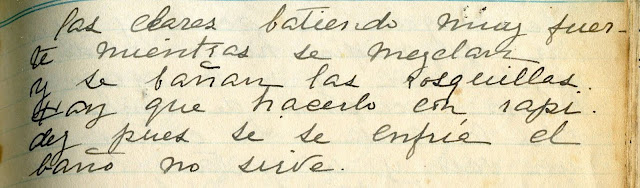 las claras batiendo muy fuer-
te mientras se mezclan
y se bañan las rosquillas.
Hay que hacerlo con rapi-
dez pues se se enfría el
baño no sirve.